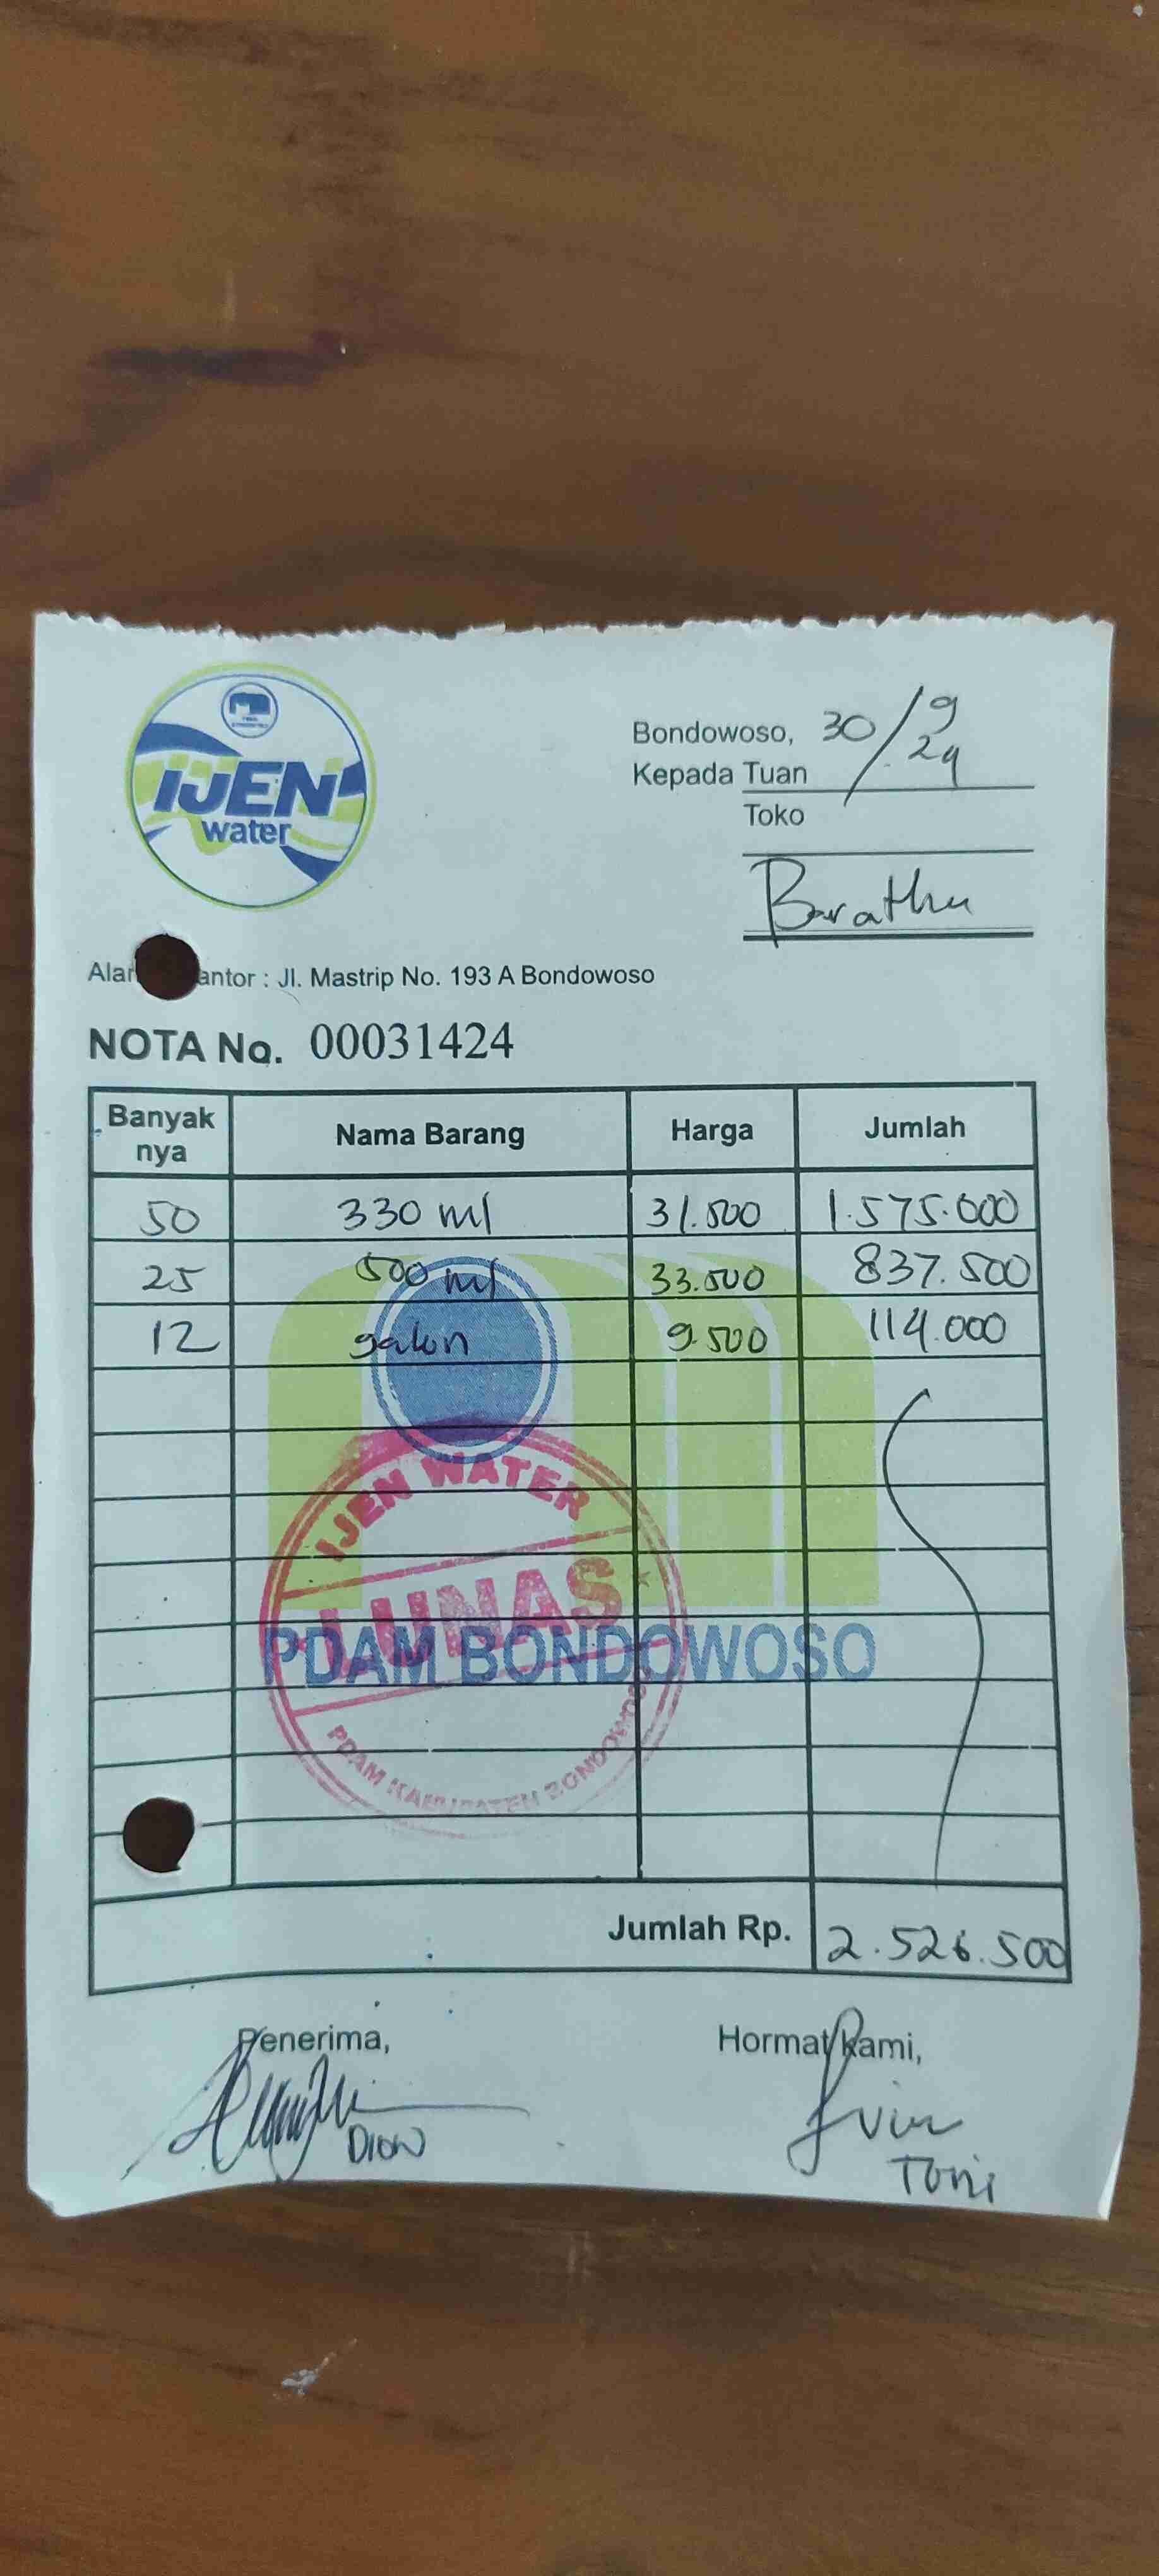 IJEN
water
Bondowoso, 30/9 24
Kepada Tuan
Toko
Barathu
Alar antor : Jl. Mastrip No. 193 A Bondowoso
NOTA No. 00031424
Banyak nya Nama Barang Harga Jumlah
50 330 ml 31.500 1.575.000
25 500 ml 33.500 837.500
12 galon 9.500 114.000
IJEN WATER
LUNAS
PDAM BONDOWOSO
PDAM KABUPATEN BONDOWOSO
Jumlah Rp. 2.526.500
Penerima, Hormat kami,
DION
Toni